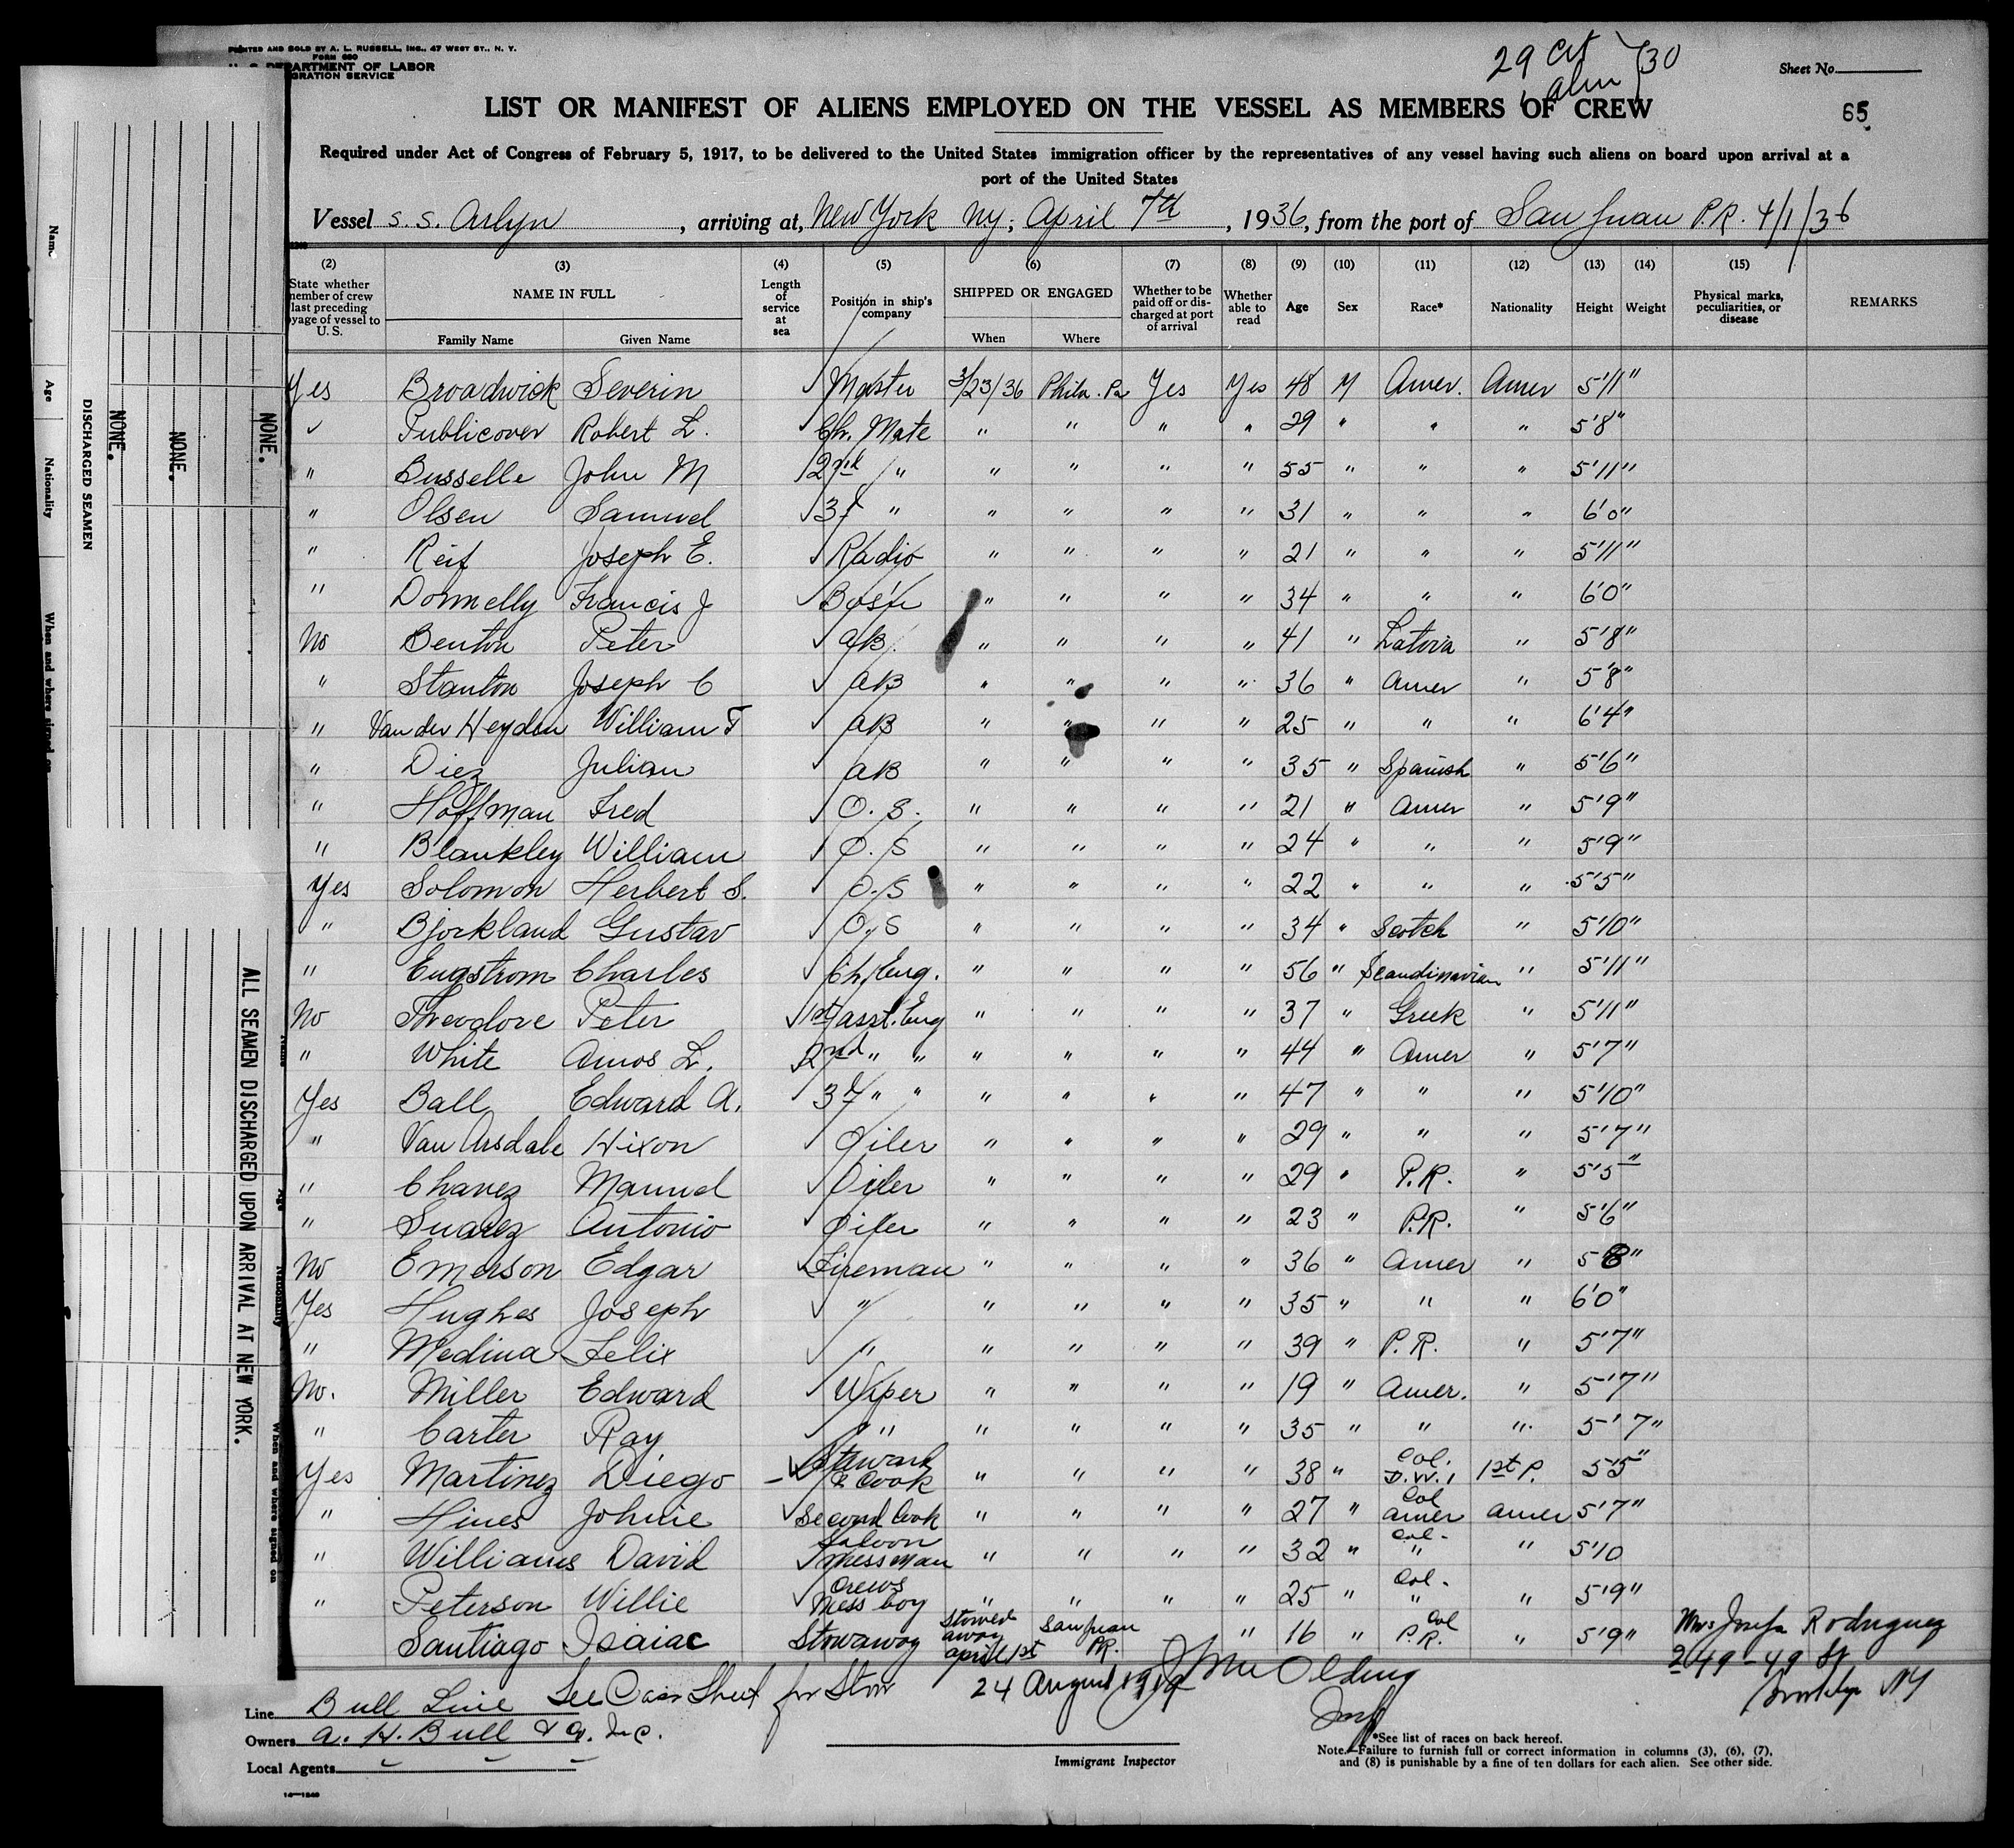 PRINTED AND SOLD BY A. L. RUSSELL, INC., 47 WEST ST., N. Y.
FORM 680
U. S. DEPARTMENT OF LABOR
IGRATION SERVICE
29 Cit
1 alm /30
Sheet No.
LIST OR MANIFEST OF ALIENS EMPLOYED ON THE VESSEL AS MEMBERS OF CREW
65
Required under Act of Congress of February 5, 1917, to be delivered to the United States immigration officer by the representatives of any vessel having such aliens on board upon arrival at a
port of the United States
Vessel S. S. Arlyn, arriving at, New York NY; April 7th, 1936, from the port of San Juan P.R. 4/1/36
(2) (3) (4) (5) (6) (7) (8) (9) (10) (11) (12) (13) (14) (15)
State whether member of crew last preceding voyage of vessel to U. S.
NAME IN FULL
Family Name Given Name
Length of service at sea
Position in ship's company
SHIPPED OR ENGAGED
When Where
Whether to be paid off or discharged at port of arrival
Whether able to read
Age Sex Race* Nationality Height Weight
Physical marks, peculiarities, or disease
REMARKS
Yes Broadwick Severin √ Master 3/23/36 Phila. Pa Yes Yes 48 M Amer. Amer 5'11"
✓ Publicover Robert L. √ Ch. Mate " " " " 29 " " " 5'8"
" Busselle John M √ 2nd " " " " " 55 " " " 5'11"
" Olsen Samuel √ 3d " " " " " 31 " " " 6'0"
" Reif Joseph E. √ Radio " " " " 21 " " " 5'11"
" Donnelly Francis J √ Bos'n " " " " 34 " " " 6'0"
No Benton Peter √ AB. " " " " 41 " Latvia " 5'8"
" Stanton Joseph C √ AB " " " " 36 " Amer " 5'8"
" Van der Heyden William F √ AB " " " " 25 " " " 6'4"
" Diez Julian √ AB " " " " 35 " Spanish " 5'6"
" Hoffman Fred √ O. S. " " " " 21 " Amer " 5'9"
" Blankley William √ O. S " " " " 24 " " " 5'9"
Yes Solomon Herbert S. √ O. S " " " " 22 " " " 5'5"
" Bjorkland Gustav √ O. S " " " " 34 " Scotch " 5'10"
" Engstrom Charles √ Ch. Eng. " " " " 56 " Scandinavian " 5'11"
No Theodore Peter √ 1st Asst. Eng " " " " 37 " Greek " 5'11"
" White Amos L. √ 2nd " " " " " " 44 " Amer " 5'7"
Yes Ball Edward A. √ 3d " " " " " " 47 " " " 5'10"
" Van Arsdale Hixon √ Oiler " " " " 29 " " " 5'7"
" Chavez Manuel √ Oiler " " " " 29 " P.R. " 5'5"
" Suarez Antonio √ Oiler " " " " 23 " P.R. " 5'6"
No Emerson Edgar √ Fireman " " " " 36 " Amer " 5 8"
Yes Hughes Joseph √ " " " " " 35 " " " 6'0"
" Medina Felix √ " " " " " 39 " P. R. " 5'7"
No. Miller Edward √ Wiper " " " " 19 " Amer. " 5'7"
" Carter Ray √ " " " " " 35 " " " 5'7"
Yes Martinez Diego √ Steward & Cook " " " " 38 " Col. D.W.I 1st P. 5'5"
" Hines Johnie √ Second Cook " " " " 27 " Col Amer Amer 5'7"
" Williams David √ Saloon Messman " " " " 32 " Col. " " 5'10
" Peterson Willie √ Crews Mess boy " " " " 25 " Col. " " 5'9"
Santiago Isaiac Stowaway Stowed away April 1st San Juan PR. " 16 " Col P.R. " 5'9" Mrs Josefa Rodriguez
249 - 49 St
Brooklyn NY
24 August 1919
Line Bull Line See Case Sheet for Stow
Owners A. H. Bull & Co. Inc.
Local Agents
Immigrant Inspector
*See list of races on back hereof.
Note.—Failure to furnish full or correct information in columns (3), (6), (7),
and (8) is punishable by a fine of ten dollars for each alien. See other side.
14—1240
Name
Age
Nationality
When and where signed on
DISCHARGED SEAMEN
NONE.
NONE.
NONE.
ALL SEAMEN DISCHARGED UPON ARRIVAL AT NEW YORK.
Name
Age
Nationality
When and where signed on